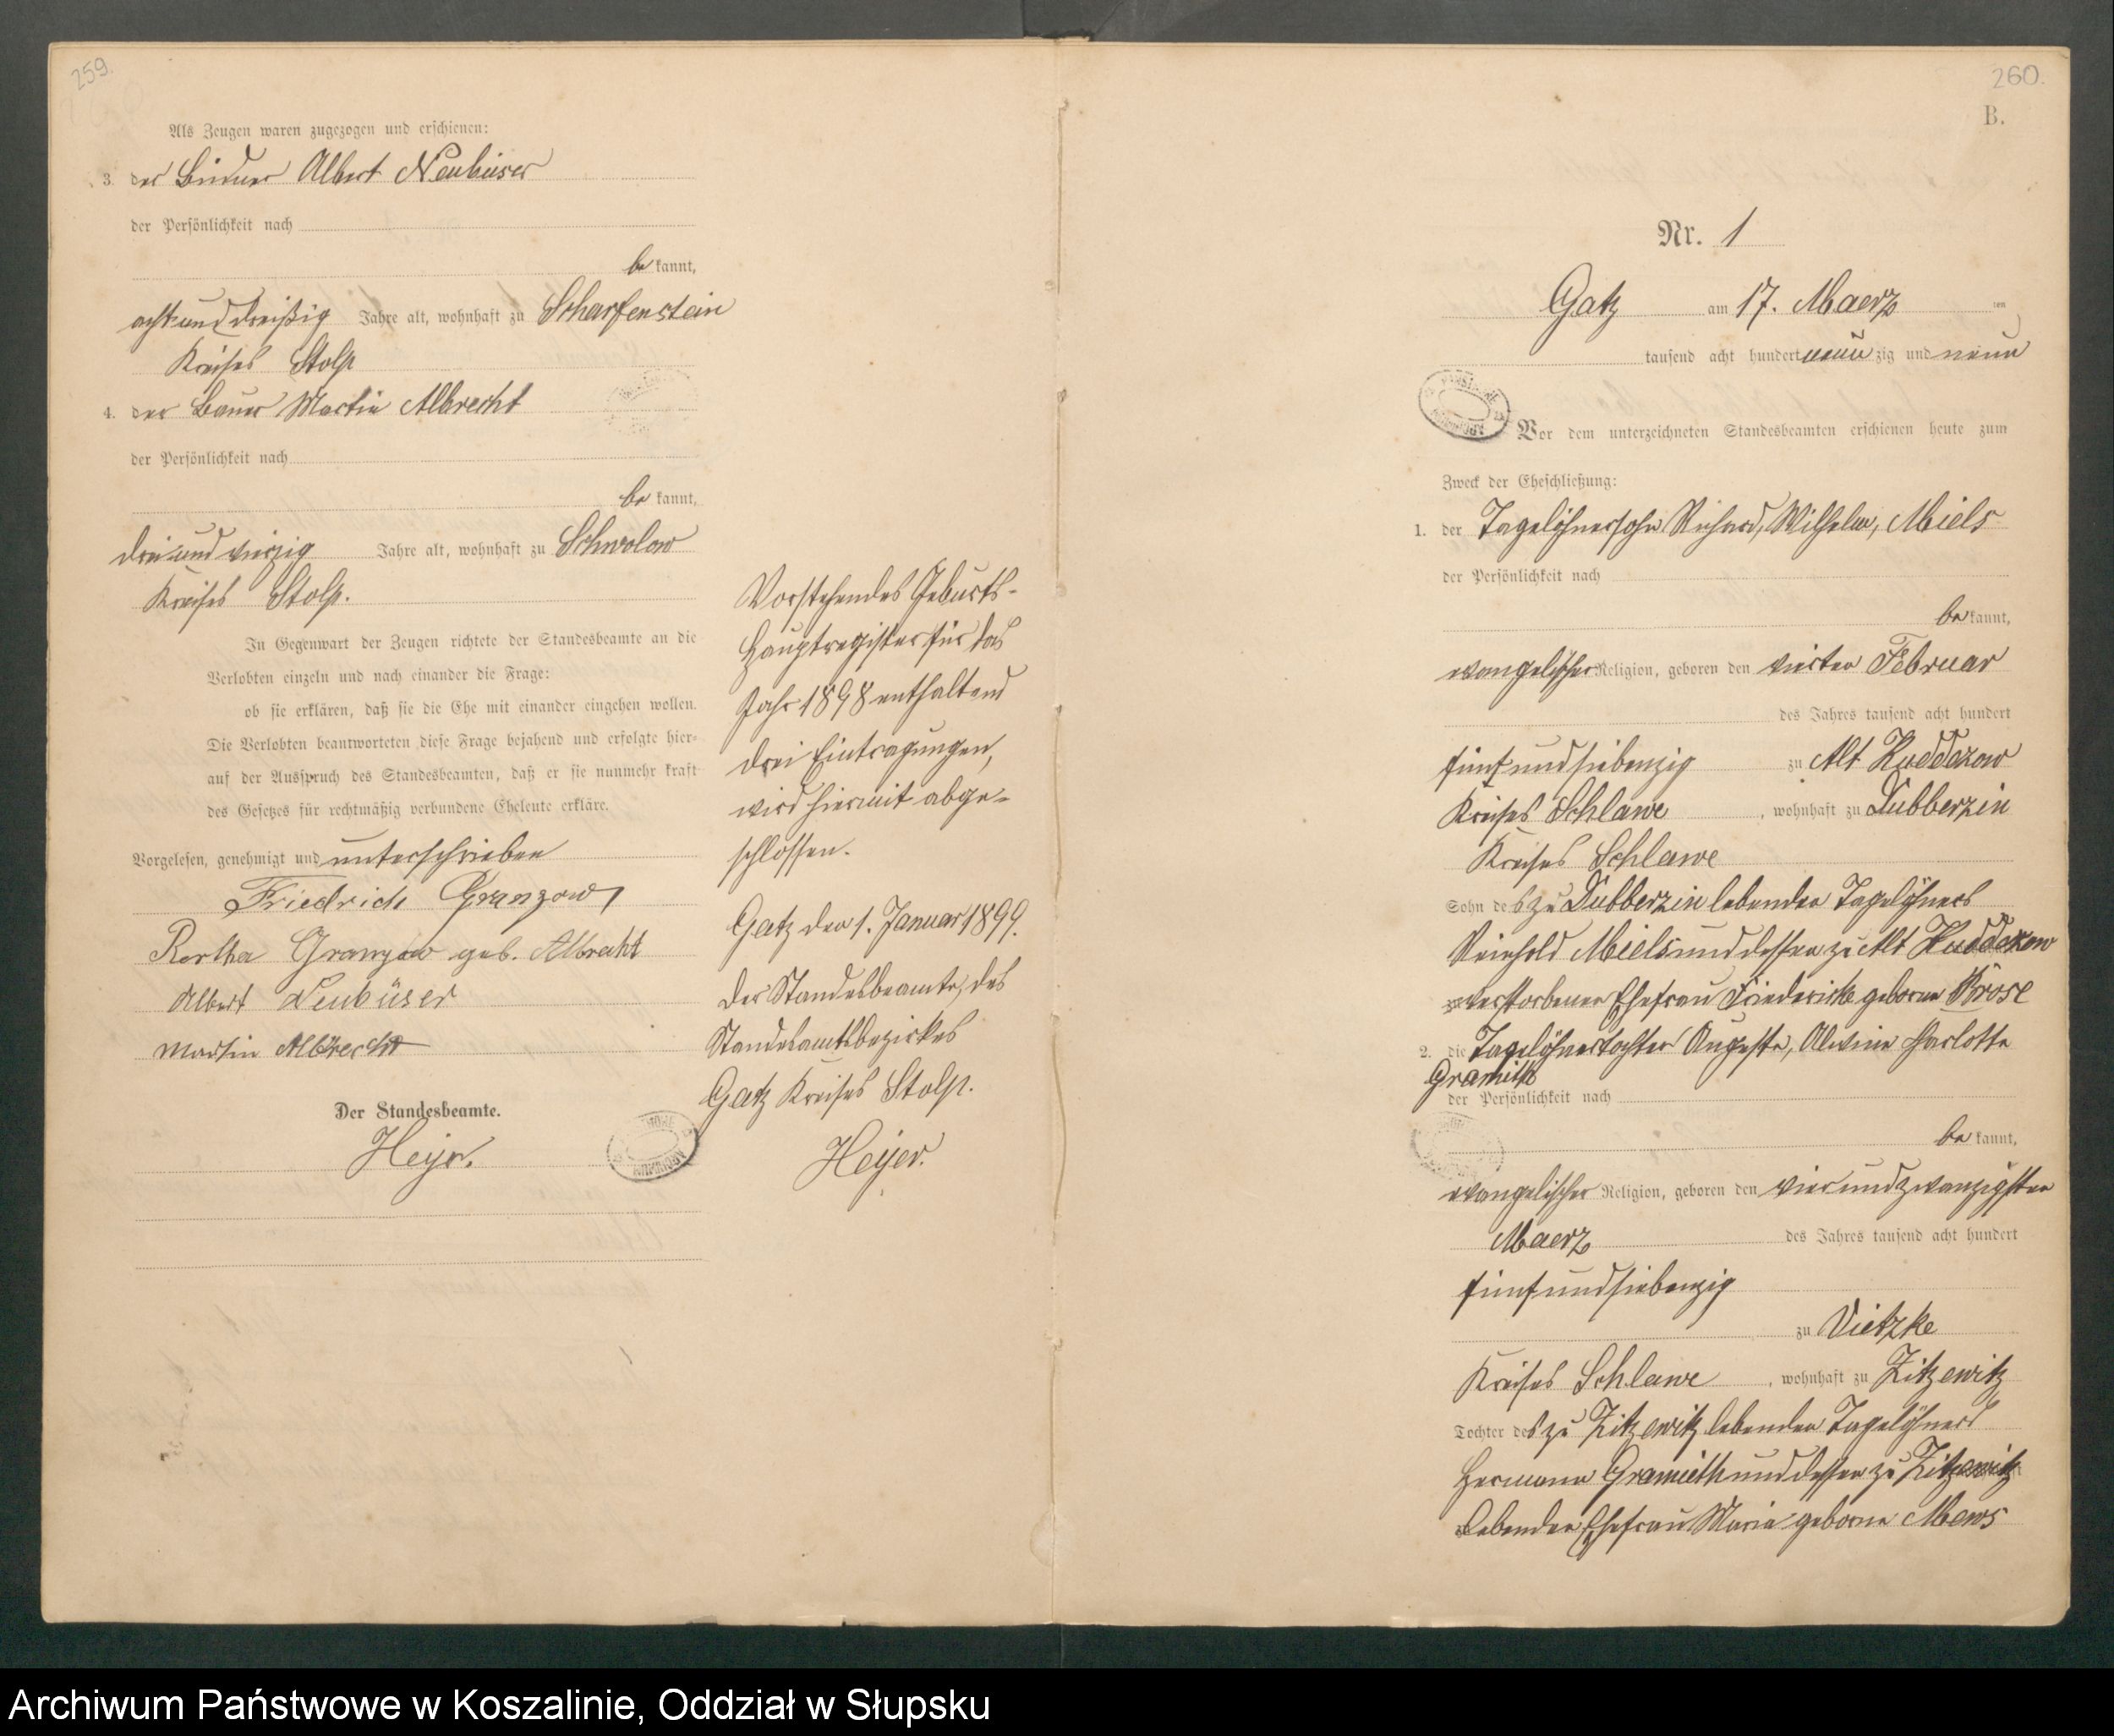 259.
Als Zeugen waren zugezogen und erschienen:
3. der Büdner Albert Neubüser
der Persönlichkeit nach
be kannt,
achtunddreißig Jahre alt, wohnhaft zu Scharfenstein
Kreises Stolp
4. der Bauer Martin Albrecht
der Persönlichkeit nach
be kannt,
dreiundvierzig Jahre alt, wohnhaft zu Schwolow
Kreises Stolp.
In Gegenwart der Zeugen richtete der Standesbeamte an die
Verlobten einzeln und nach einander die Frage:
ob sie erklären, daß sie die Ehe mit einander eingehen wollen.
Die Verlobten beantworteten diese Frage bejahend und erfolgte hier-
auf der Ausspruch des Standesbeamten, daß er sie nunmehr kraft
des Gesetzes für rechtmäßig verbundene Eheleute erkläre.
Vorgelesen, genehmigt und unterschrieben
Friedrich Granzow
Bertha Granzow geb. Albrecht
Albert Neubüser
Martin Albrecht
Der Standesbeamte.
Heyer.
Vorstehendes Geburts-
Hauptregister für das
Jahr 1898 enthaltend
drei Eintragungen,
wird hiermit abge-
schlossen.
Gatz den 1. Januar 1899.
Der Standesbeamte, des
Standesamtsbezirkes
Gatz Kreises Stolp.
Heyer.
260.
B.
Nr. 1
Gatz am 17. Maerz ten
tausend acht hundert neun zig und neun
Vor dem unterzeichneten Standesbeamten erschienen heute zum
Zweck der Eheschließung:
1. der Tagelöhnersohn Richard, Wilhelm, Miels
der Persönlichkeit nach
be kannt,
evangelischer Religion, geboren den vierten Februar
des Jahres tausend acht hundert
fünfundsiebenzig zu Alt Kuddezow
Kreises Schlawe, wohnhaft zu Dubberzin
Kreises Schlawe
Sohn des zu Dubberzin lebenden Tagelöhners
Reinhold Miels und dessen zu Alt Kuddezow
verstorbenen Ehefrau Friederike geborne Krose
2. die Tagelöhnertochter Auguste, Alwine Charlotte
Gramith
der Persönlichkeit nach
be kannt,
evangelischer Religion, geboren den vierundzwanzigsten
Maerz des Jahres tausend acht hundert
fünfundsiebenzig
zu Vietzke
Kreises Schlawe, wohnhaft zu Zitzewitz
Tochter des zu Zitzewitz lebenden Tagelöhners
Hermann Gramieth und dessen zu Zitzewitz
lebenden Ehefrau Maria geborne Mews
Archiwum Państwowe w Koszalinie, Oddział w Słupsku